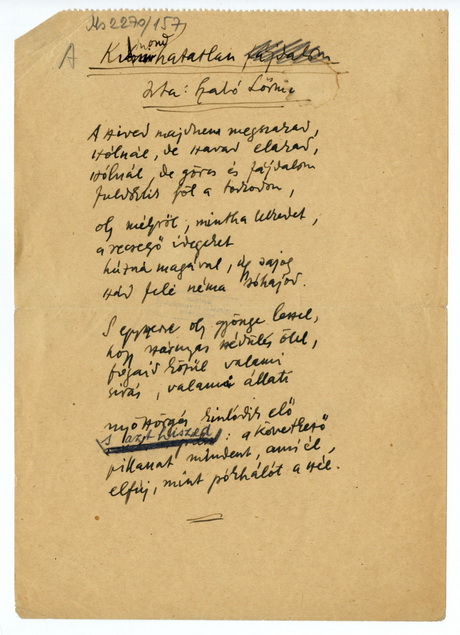 Ms 2270/157
A
Kimondhatatlan
Irta: Szabó Lőrinc
A szived majdnem megszakad,
szólnál, de szavad elakad,
szólnál, de görcs és fájdalom
fuldoklik föl a torkodon,
oly mélyről, mintha lelkedet,
a recsegő idegeket
húzná magával, úgy sajog
szád felé néma sóhajod.
S egyszerre oly gyönge leszel,
hogy szárnyas szédülés ölel,
fogaid közül valami
sirás, valami állati
nyöszörgés kinlódik elő
s azt hiszed: a következő
pillanat mindent, ami él,
elfúj, mint pókhálót a szél.